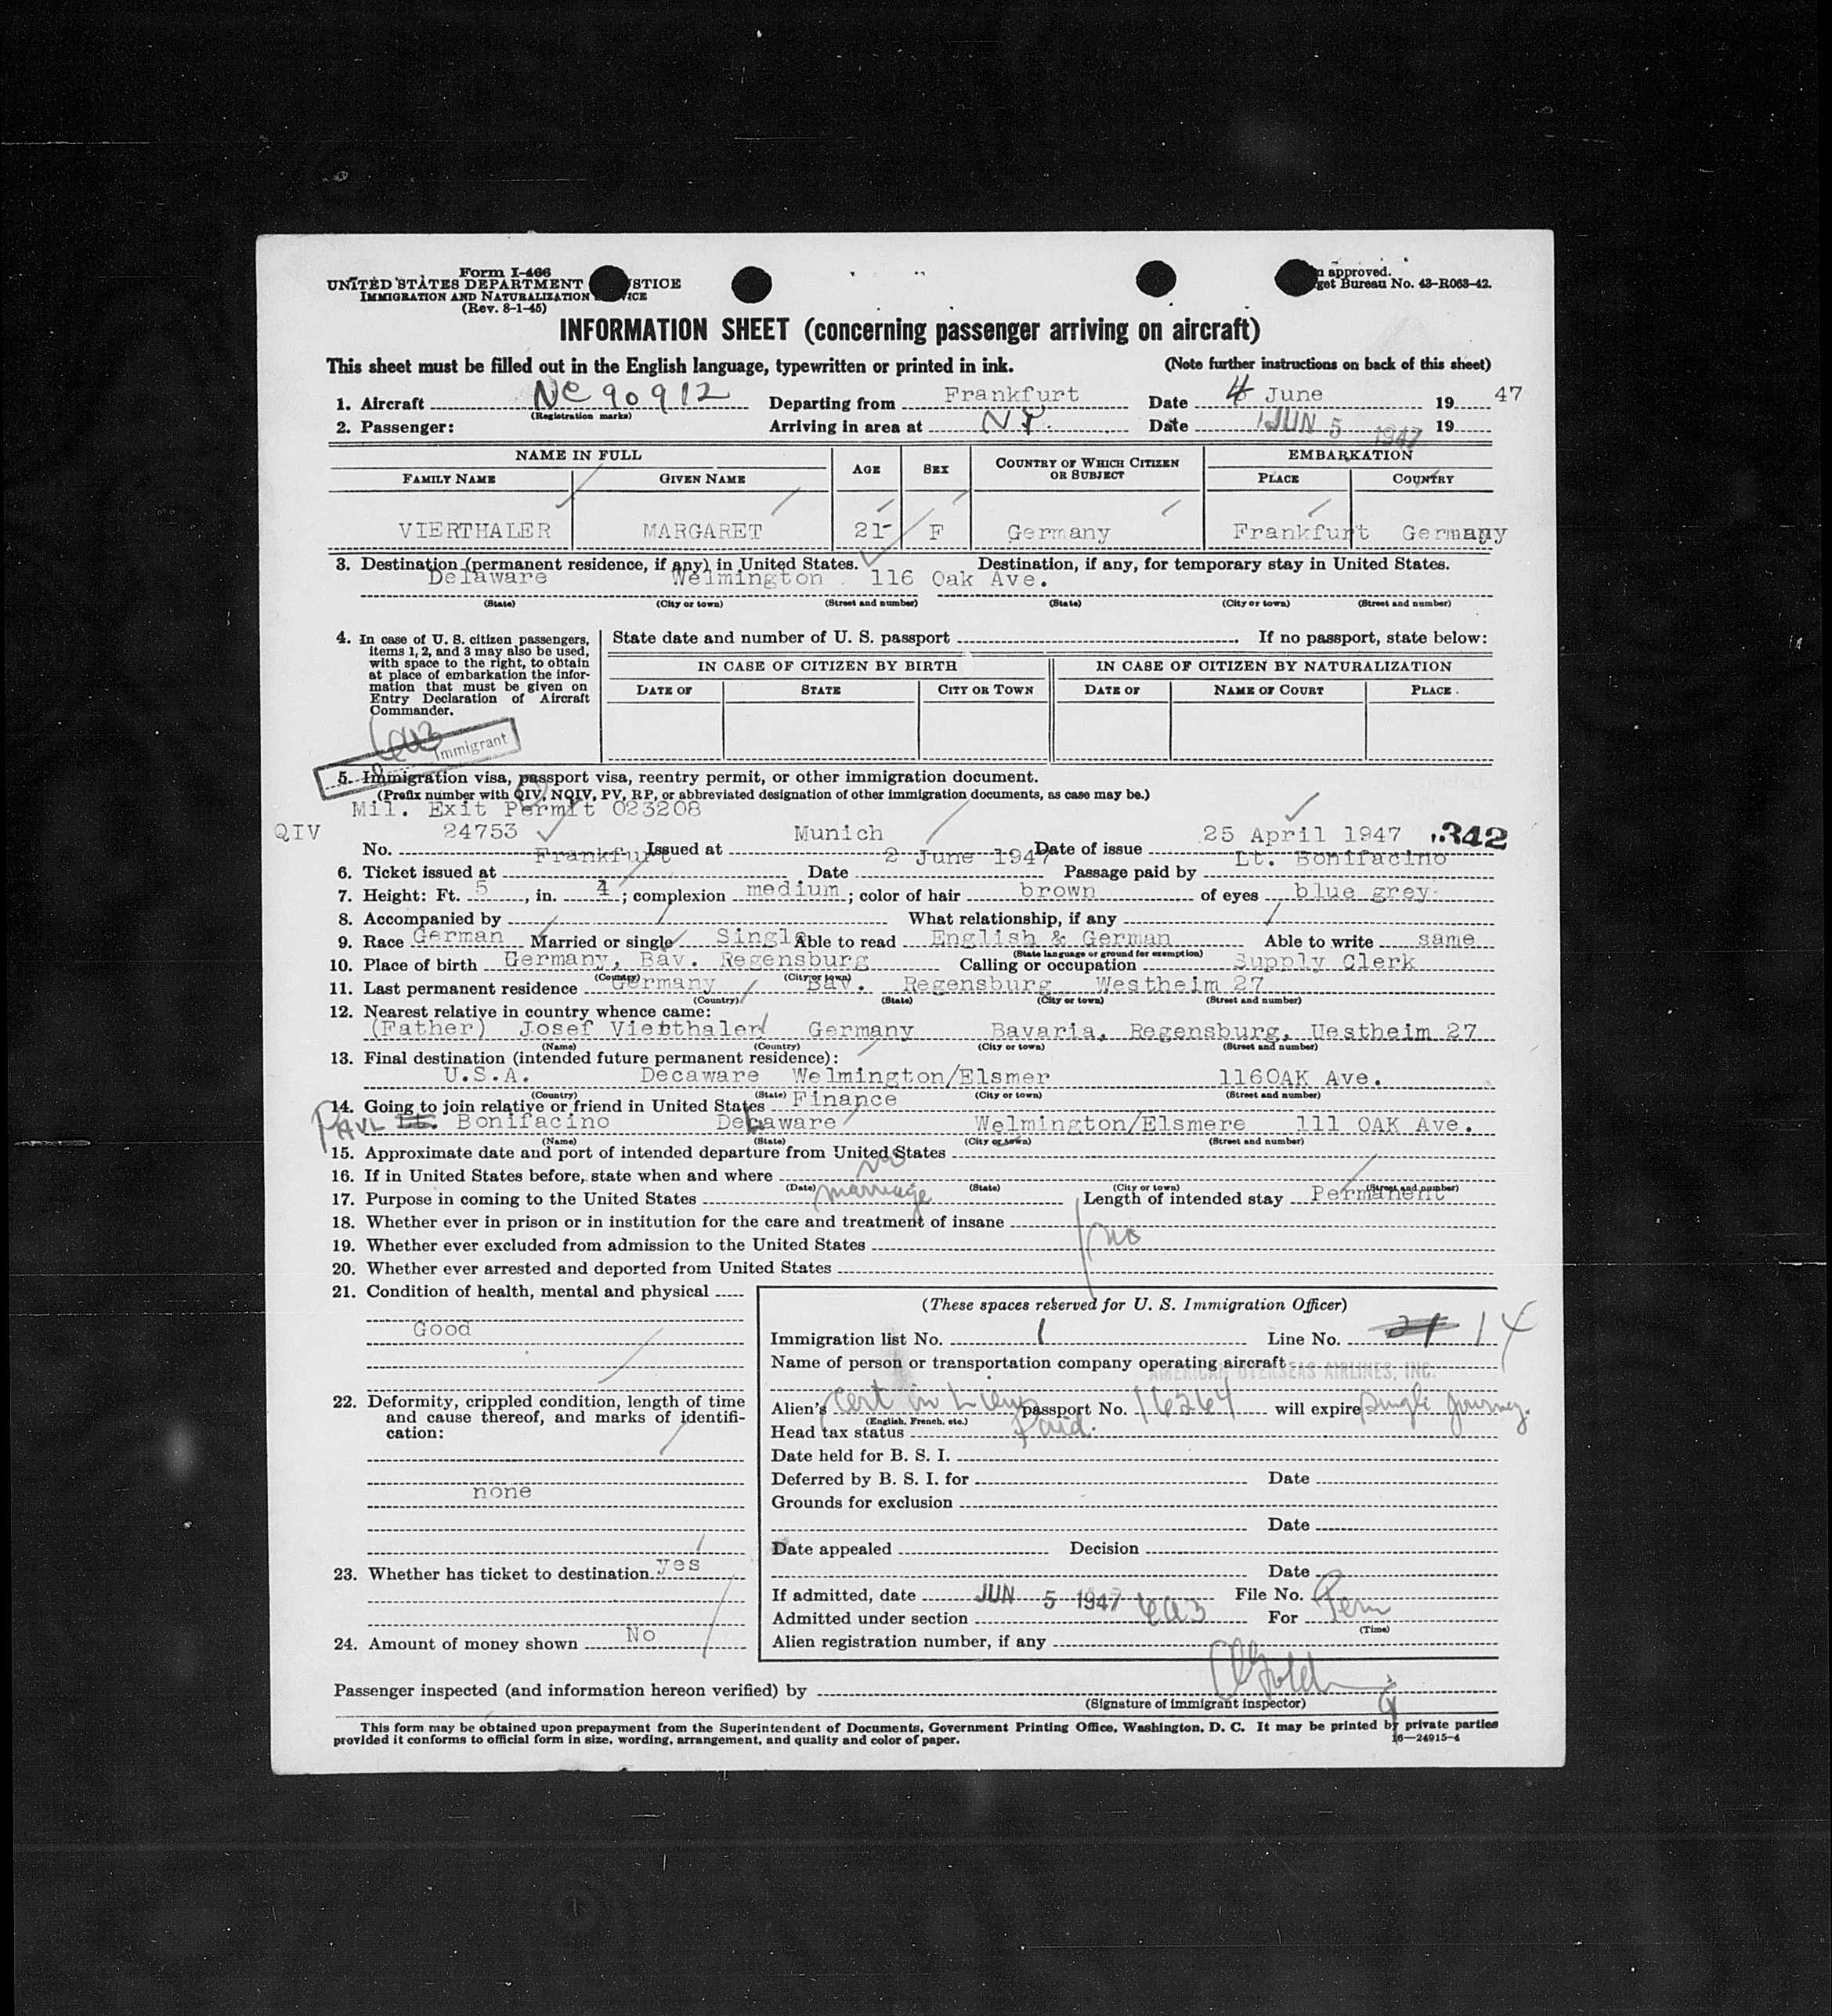 Form I-466
UNITED STATES DEPARTMENT STICE
IMMIGRATION AND NATURALIZATION ICE
(Rev. 8-1-45)
n approved.
get Bureau No. 43-R063-42.
INFORMATION SHEET (concerning passenger arriving on aircraft)
This sheet must be filled out in the English language, typewritten or printed in ink. (Note further instructions on back of this sheet)
1. Aircraft NC 90912 Departing from Frankfurt Date 4 June 1947
(Registration marks)
2. Passenger: Arriving in area at N.Y. Date JUN 5 1947 19
NAME IN FULL AGE SEX COUNTRY OF WHICH CITIZEN OR SUBJECT EMBARKATION
FAMILY NAME GIVEN NAME PLACE COUNTRY
VIERTHALER MARGARET 21 F Germany Frankfurt Germany
3. Destination (permanent residence, if any) in United States. Destination, if any, for temporary stay in United States.
Delaware Welmington 116 Oak Ave.
(State) (City or town) (Street and number) (State) (City or town) (Street and number)
4. In case of U. S. citizen passengers, items 1, 2, and 3 may also be used, with space to the right, to obtain at place of embarkation the information that must be given on Entry Declaration of Aircraft Commander.
State date and number of U. S. passport . If no passport, state below:
IN CASE OF CITIZEN BY BIRTH IN CASE OF CITIZEN BY NATURALIZATION
DATE OF STATE CITY OR TOWN DATE OF NAME OF COURT PLACE.
6a3 Immigrant
5. Immigration visa, passport visa, reentry permit, or other immigration document.
(Prefix number with QIV, NQIV, PV, RP, or abbreviated designation of other immigration documents, as case may be.)
Mil. Exit Permit 023208
QIV No. 24753 Issued at Munich Date of issue 25 April 1947 342
6. Ticket issued at Frankfurt Date 2 June 1947 Passage paid by Lt. Bonifacino
7. Height: Ft. 5, in. 4; complexion medium; color of hair brown of eyes blue grey
8. Accompanied by What relationship, if any
9. Race German Married or single Single Able to read English & German Able to write same
(State language or ground for exemption)
10. Place of birth Germany, Bav. Regensburg Calling or occupation Supply Clerk
(Country) (City or town)
11. Last permanent residence Germany Bav. Regensburg Westheim 27
(Country) (State) (City or town) (Street and number)
12. Nearest relative in country whence came:
(Father) Josef Vierthaler Germany Bavaria, Regensburg, Uestheim 27
(Name) (Country) (City or town) (Street and number)
13. Final destination (intended future permanent residence):
U.S.A. Decaware Welmington/Elsmer 116OAK Ave.
(Country) (State) (City or town) (Street and number)
14. Going to join relative or friend in United States Finance
PAUL Lt. Bonifacino Delaware Welmington/Elsmere 111 OAK Ave.
(Name) (State) (City or town) (Street and number)
15. Approximate date and port of intended departure from United States
16. If in United States before, state when and where no
(Date) (State) (City or town) (Street and number)
17. Purpose in coming to the United States marriage Length of intended stay Permanent
18. Whether ever in prison or in institution for the care and treatment of insane
19. Whether ever excluded from admission to the United States no
20. Whether ever arrested and deported from United States
21. Condition of health, mental and physical
Good
22. Deformity, crippled condition, length of time and cause thereof, and marks of identification:
none
23. Whether has ticket to destination yes
24. Amount of money shown No
(These spaces reserved for U. S. Immigration Officer)
Immigration list No. 1 Line No. 21 14
Name of person or transportation company operating aircraft
AMERICAN OVERSEAS AIRLINES, INC.
Alien's Cert in Lieu passport No. 16264 will expire single journey.
(English, French, etc.)
Head tax status Paid.
Date held for B. S. I.
Deferred by B. S. I. for Date
Grounds for exclusion
Date
Date appealed Decision
Date
If admitted, date JUN 5 1947 File No.
Admitted under section 6a3 For Perm
(Time)
Alien registration number, if any
Passenger inspected (and information hereon verified) by
(Signature of immigrant inspector)
This form may be obtained upon prepayment from the Superintendent of Documents, Government Printing Office, Washington, D. C. It may be printed by private parties
provided it conforms to official form in size, wording, arrangement, and quality and color of paper. 16—24915-4